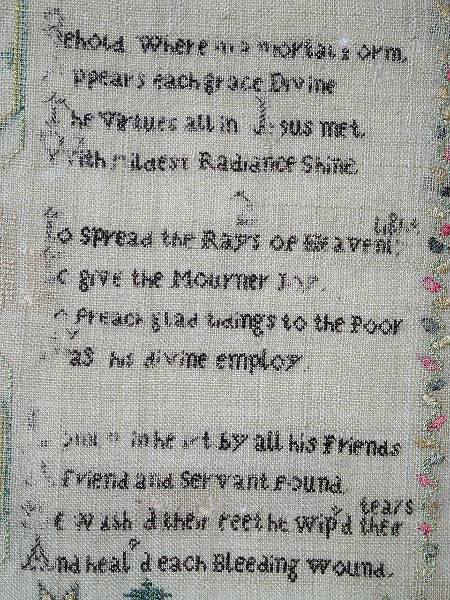 Behold Where in a mortal Form,
Appears each grace Divine
The Virtues all in Jesus met,
With mildest Radiance Shine
2
light
To Spread the Rays of Heavenly
To give the Mourner Joy
To Preach glad tidings to the Poor
Was his divine employ
in heart by all his Friends
A Friend and Servant Found
tears
He Wash'd their Feet he Wip'd their
And heal'd each Bleeding Wound.